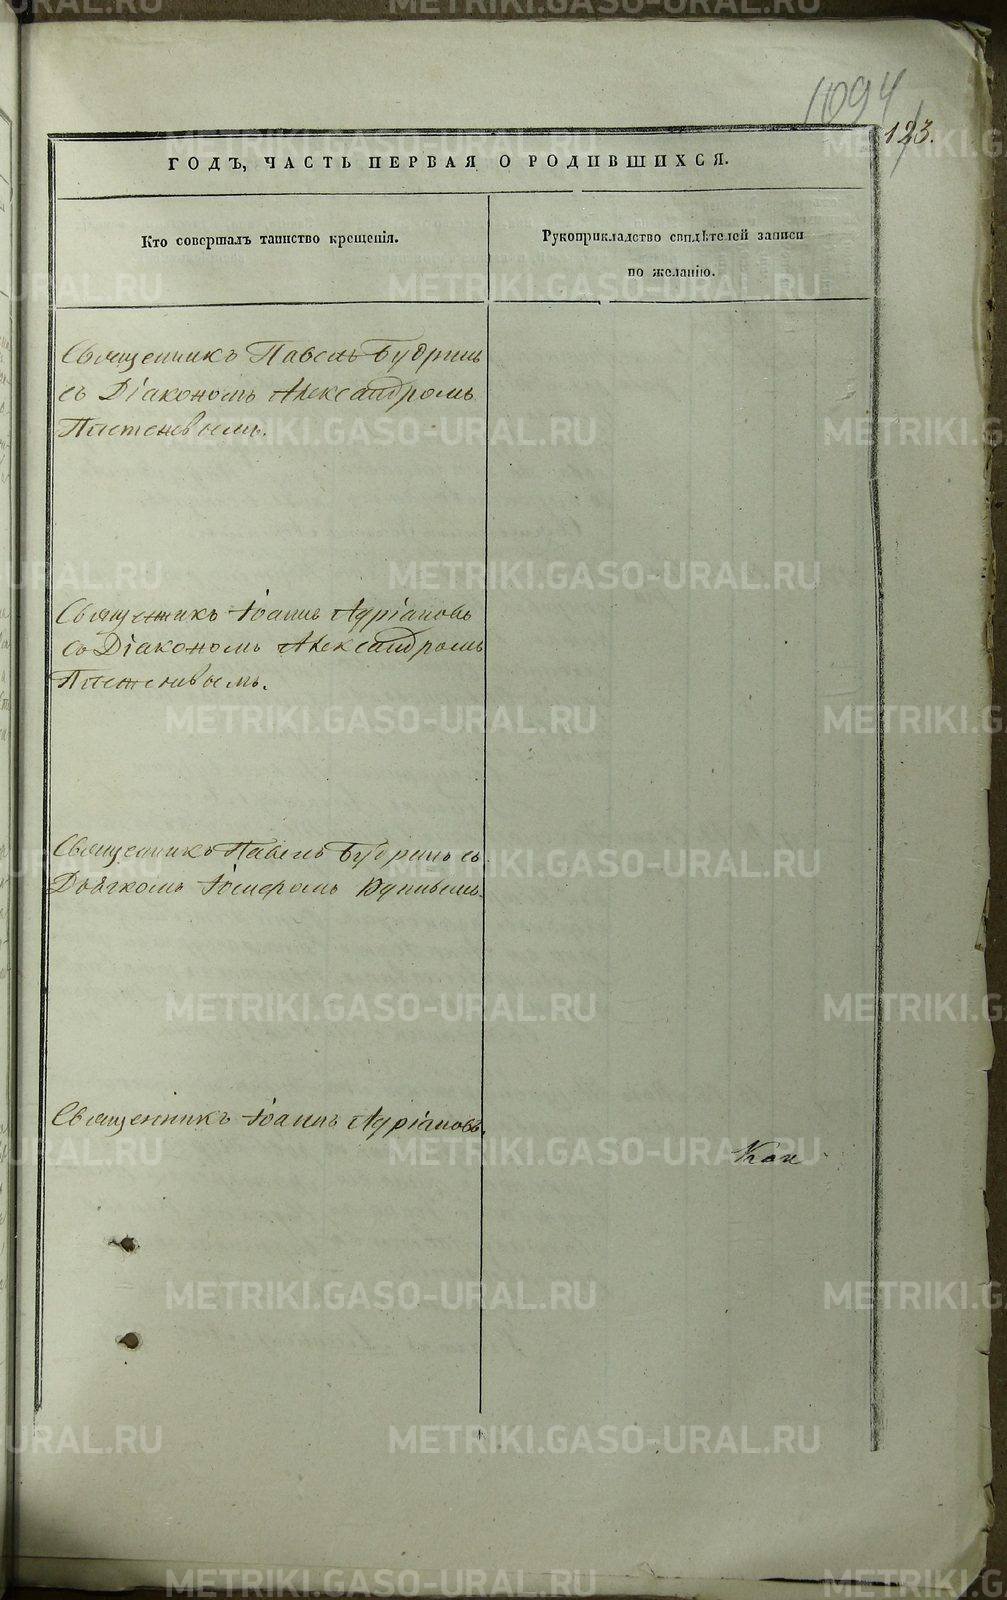 1094
123.
ГОДЪ, ЧАСТЬ ПЕРВАЯ О РОДИВШИХСЯ.
Кто совершалъ таинство крещенія.
Рукоприкладство свидѣтелей записи
по желанію.
Священникъ Павелъ Будринъ
съ Діакономъ Александромъ
Плетеневымъ.
Священникъ Іоаннъ Адріановъ
съ Діакономъ Александромъ
Плетеневымъ.
Священникъ Павелъ Будринъ съ
Дьячкомъ
Священникъ Іоаннъ Адріановъ.
METRIKI.GASO-URAL.RU